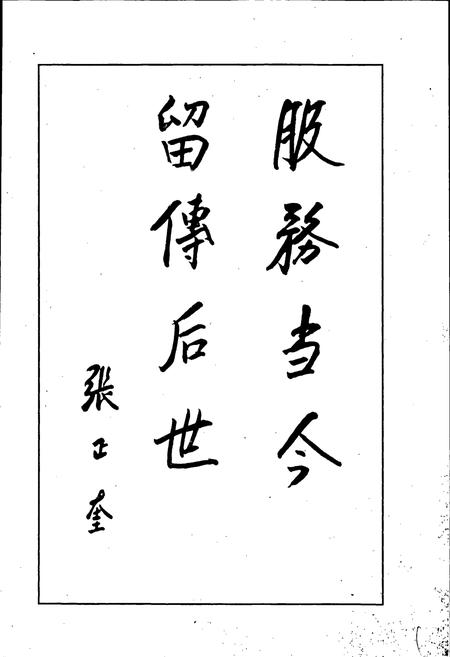 服務当今
留傳后世
張正奎